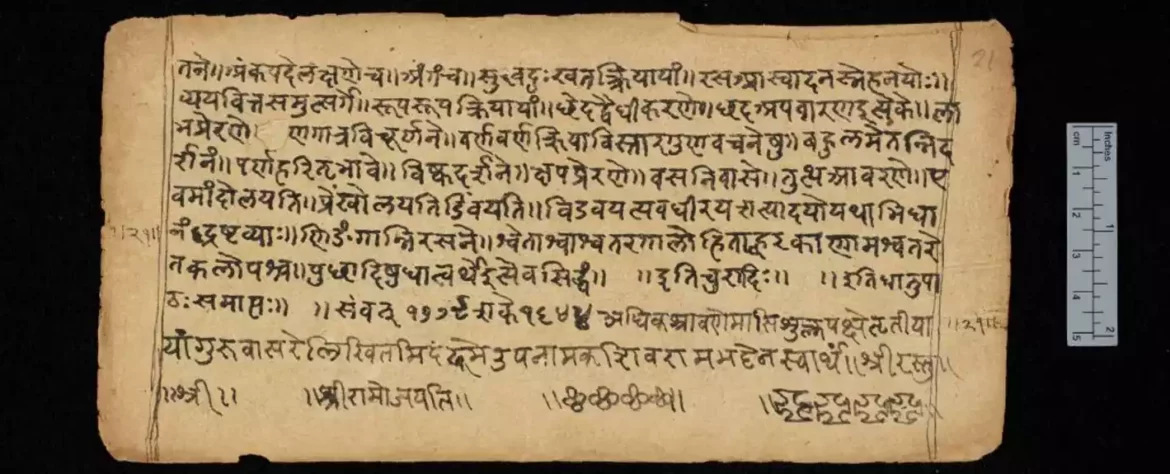 तने॥अंकपदेलक्षणेच॥अंगंच॥सुखदुःखतत्क्रियायां॥रसआस्वादनस्नेहनयोः॥
व्ययवित्तसमुत्सर्गे॥रूपरूपक्रियायां॥छेदद्वैधीकरणे॥छदअपवारणइत्येके॥ला
भप्रेरणे॥ व्रणगात्रविचूर्णने॥वर्णवर्णक्रियाविस्तारगुणवचनेषु॥बहुलमेतन्निद
र्शनं॥पर्णहरितभावे॥विष्कदर्शने॥क्षपप्रेरणे॥वसनिवासे॥तुत्थआवरणे॥ए
वमांदोलयति॥प्रेंखोलयतिडिंबयति॥विडंबयत्यवधीरय
नंद्रष्टव्याः॥णिङंगान्निरसने॥श्वेताश्वाश्वतरगालोहिताह्वरकाणामश्वतरे
तकलोपश्च॥पुछादिषुधात्वर्थइत्येवसिद्धं॥ ॥इतिचुरादिः॥ ॥इतिधातुपा
ठःसमाप्तः॥ ॥संवत् शके१६४४ अधिकश्रावणेमासिशुक्लपक्षेतृतीया
यांगुरुवासरेलिखितमिदं शिवरामभट्टेनस्वार्थं॥श्रीरस्तु॥
॥श्री॥ ॥श्रीरामोजयति॥
॥२१॥
॥२१॥
21
Inches
cm
1
2
3
4
5
1
2